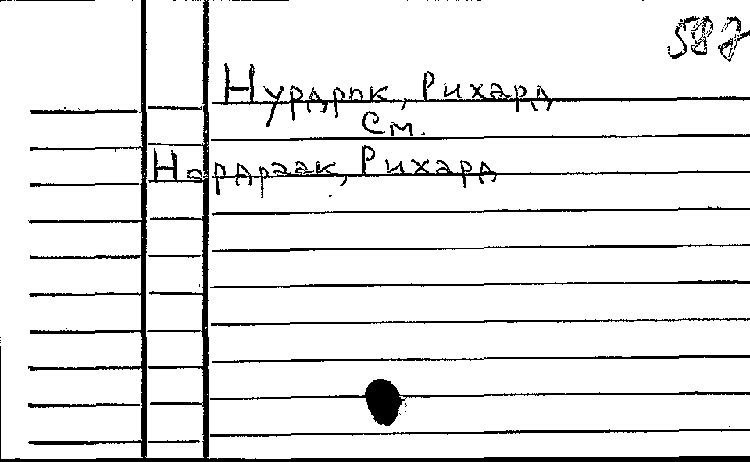 587
Нурдрок, Рихард
См.
Нордраак, Рихард